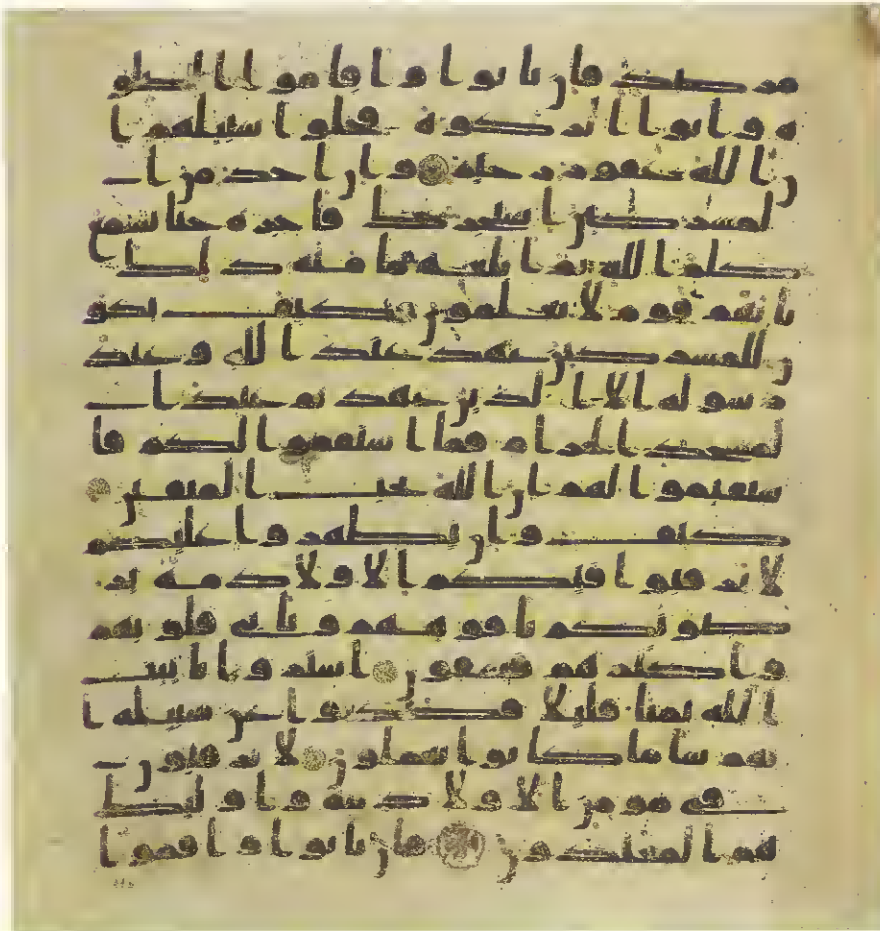 مرصد فان تابوا واقاموا الصلو
ة واتوا الزكوة فخلوا سبيلهم ا
ن الله غفور رحيم وان احد من ا
لمشركين استجارك فاجره حتى يسمع
كلم الله ثم ابلغه مامنه ذلك
بانهم قوم لا يعلمون كيف يكو
ن للمشركين عهد عند الله وعند
رسوله الا الذين عهدتم عند ا
لمسجد الحرام فما استقموا لكم فا
ستقيموا لهم ان الله يحب المتقين
كيف وان يظهروا عليكم
لا يرقبوا فيكم الا ولا ذمة ير
ضونكم بافوههم وتابى قلوبهم
واكثرهم فسقون اشتروا بايت
الله ثمنا قليلا فصدوا عن سبيله ا
نهم سا ما كانوا يعملون لا يرقبون
في مومن الا ولا ذمة واوليك
هم المعتدون فان تابوا واقاموا